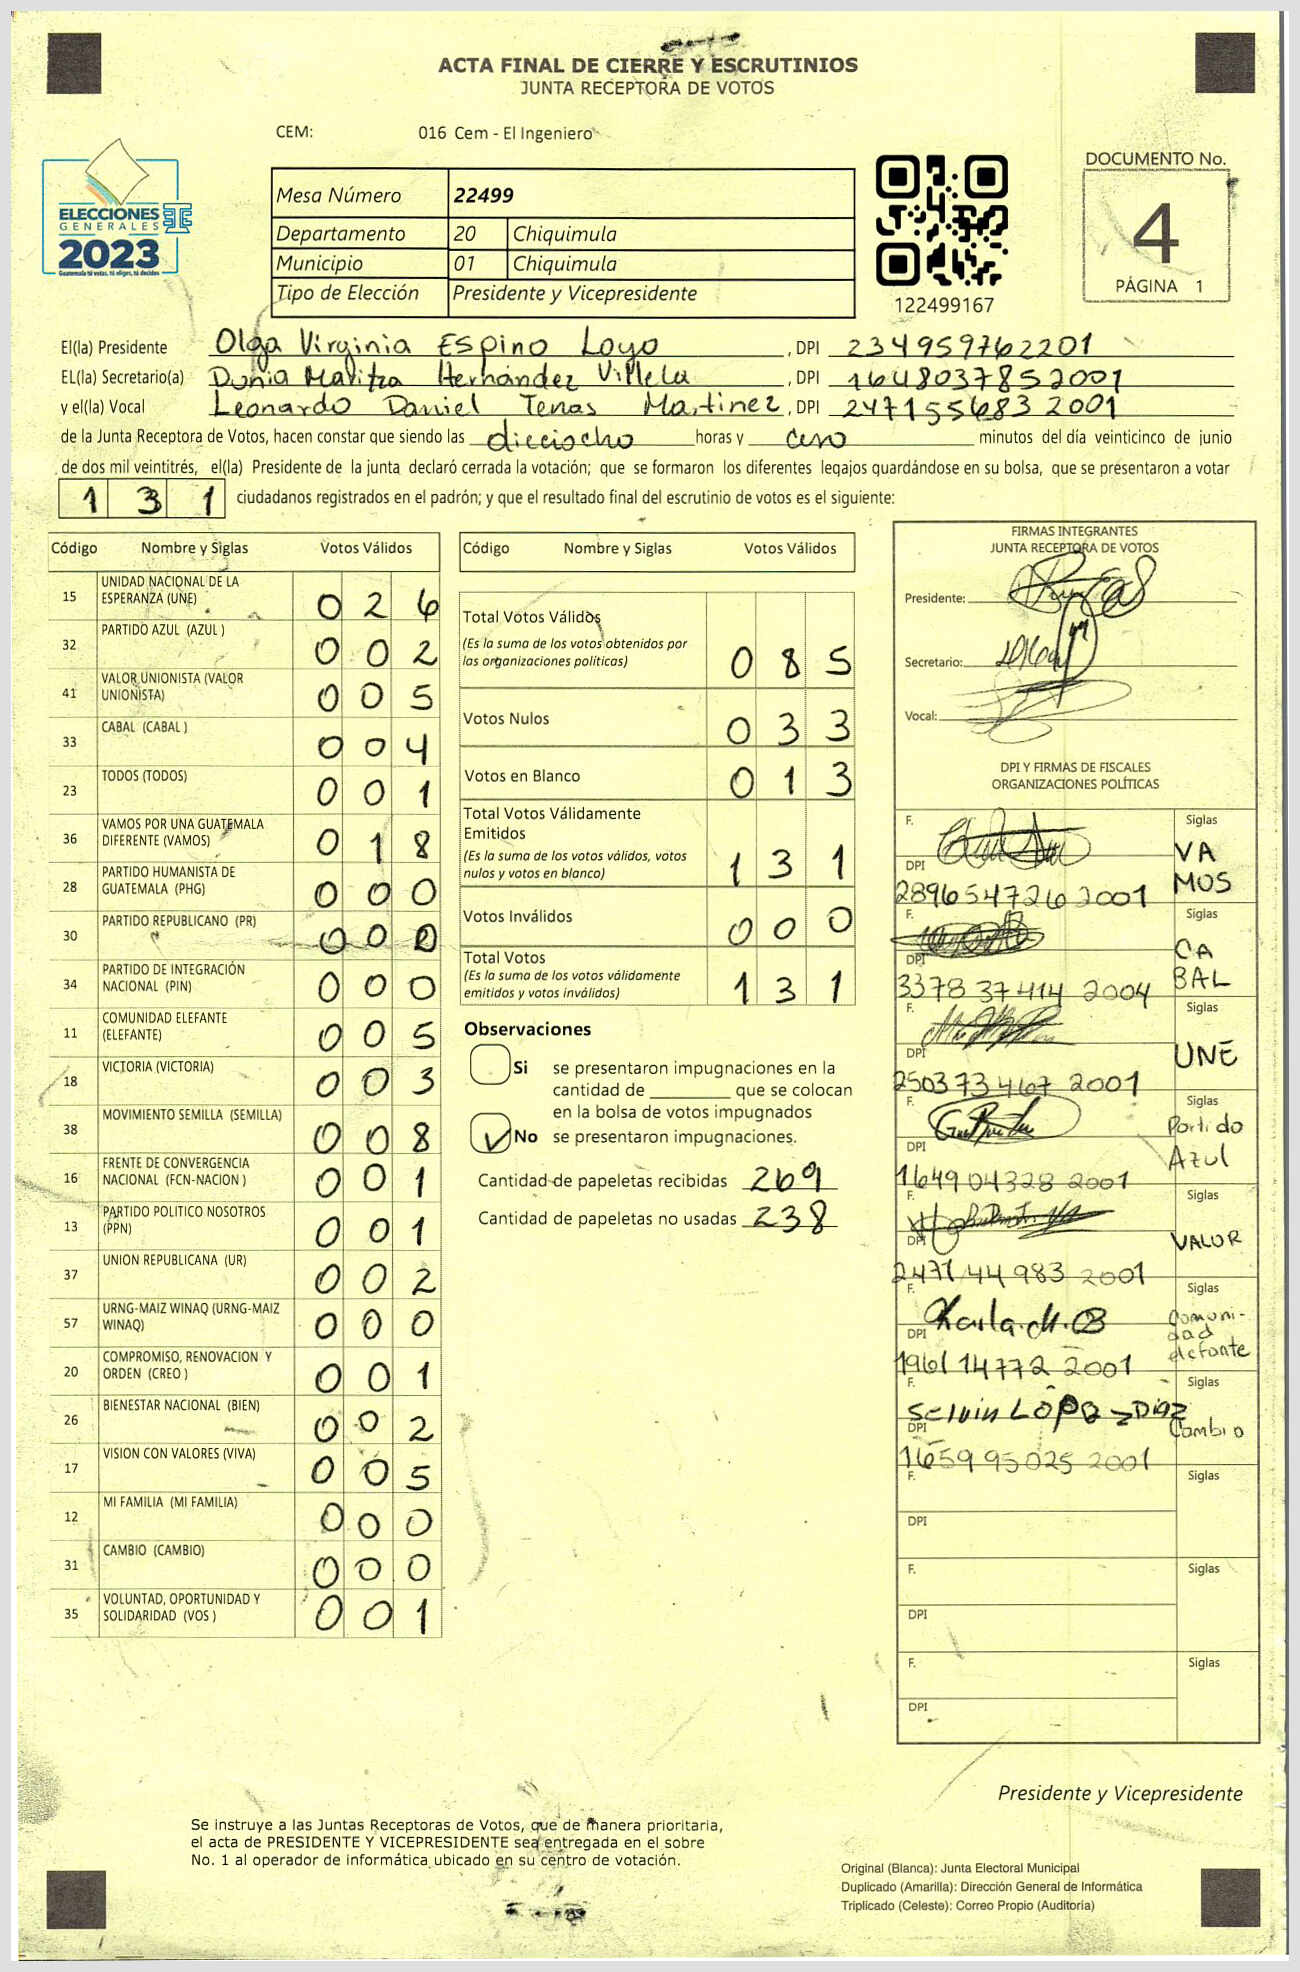 ACTA FINAL DE CIERRE Y ESCRUTINIOS
JUNTA RECEPTORA DE VOTOS
CEM: 016 Cem - El Ingeniero
ELECCIONES
GENERALES
2023
Guatemala tú votas, tú eliges, tú decides
Mesa Número 22499
Departamento 20 Chiquimula
Municipio 01 Chiquimula
Tipo de Elección Presidente y Vicepresidente
122499167
DOCUMENTO No.
4
PÁGINA 1
El(la) Presidente Olga Virginia Espino Loyo , DPI 234959762201
EL(la) Secretario(a) Dunia Maritza Hernández Villela , DPI 1648037852001
y el(la) Vocal Leonardo Daniel Tenas Martinez , DPI 2471556832001
de la Junta Receptora de Votos, hacen constar que siendo las dieciocho horas y cero minutos del día veinticinco de junio
de dos mil veintitrés, el(la) Presidente de la junta declaró cerrada la votación; que se formaron los diferentes legajos guardándose en su bolsa, que se presentaron a votar
131 ciudadanos registrados en el padrón; y que el resultado final del escrutinio de votos es el siguiente:
Código Nombre y Siglas Votos Válidos
15 UNIDAD NACIONAL DE LA ESPERANZA (UNE) 026
32 PARTIDO AZUL (AZUL ) 002
41 VALOR UNIONISTA (VALOR UNIONISTA) 005
33 CABAL (CABAL ) 004
23 TODOS (TODOS) 001
36 VAMOS POR UNA GUATEMALA DIFERENTE (VAMOS) 018
28 PARTIDO HUMANISTA DE GUATEMALA (PHG) 000
30 PARTIDO REPUBLICANO (PR) 000
34 PARTIDO DE INTEGRACIÓN NACIONAL (PIN) 000
11 COMUNIDAD ELEFANTE (ELEFANTE) 005
18 VICTORIA (VICTORIA) 003
38 MOVIMIENTO SEMILLA (SEMILLA) 008
16 FRENTE DE CONVERGENCIA NACIONAL (FCN-NACION ) 001
13 PARTIDO POLITICO NOSOTROS (PPN) 001
37 UNION REPUBLICANA (UR) 002
57 URNG-MAIZ WINAQ (URNG-MAIZ WINAQ) 000
20 COMPROMISO, RENOVACION Y ORDEN (CREO ) 001
26 BIENESTAR NACIONAL (BIEN) 002
17 VISION CON VALORES (VIVA) 005
12 MI FAMILIA (MI FAMILIA) 000
31 CAMBIO (CAMBIO) 000
35 VOLUNTAD, OPORTUNIDAD Y SOLIDARIDAD (VOS ) 001
Código Nombre y Siglas Votos Válidos
Total Votos Válidos
(Es la suma de los votos obtenidos por las organizaciones políticas) 085
Votos Nulos 033
Votos en Blanco 013
Total Votos Válidamente Emitidos
(Es la suma de los votos válidos, votos nulos y votos en blanco) 131
Votos Inválidos 000
Total Votos
(Es la suma de los votos válidamente emitidos y votos inválidos) 131
Observaciones
Si se presentaron impugnaciones en la
cantidad de ________ que se colocan
en la bolsa de votos impugnados
No se presentaron impugnaciones.
Cantidad de papeletas recibidas 269
Cantidad de papeletas no usadas 238
FIRMAS INTEGRANTES
JUNTA RECEPTORA DE VOTOS
Presidente:
Secretario:
Vocal:
DPI Y FIRMAS DE FISCALES
ORGANIZACIONES POLÍTICAS
F. Siglas
VAMOS
DPI
2896547262001
F. Siglas
CABAL
DPI
3378 37414 2004
F. Siglas
UNE
DPI
2503 73467 2001
F. Siglas
Partido Azul
DPI
1649 04328 2001
F. Siglas
VALOR
DPI
2471 44983 2001
F. Siglas
Karla.M.
Comunidad elefante
DPI
1961 14772 2001
F. Siglas
Selvin LÓPEZ DíAZ
Cambio
DPI
1659 95025 2001
F. Siglas
DPI
F. Siglas
DPI
F. Siglas
DPI
Presidente y Vicepresidente
Se instruye a las Juntas Receptoras de Votos, que de manera prioritaria,
el acta de PRESIDENTE Y VICEPRESIDENTE sea entregada en el sobre
No. 1 al operador de informática ubicado en su centro de votación.
Original (Blanca): Junta Electoral Municipal
Duplicado (Amarilla): Dirección General de Informática
Triplicado (Celeste): Correo Propio (Auditoría)